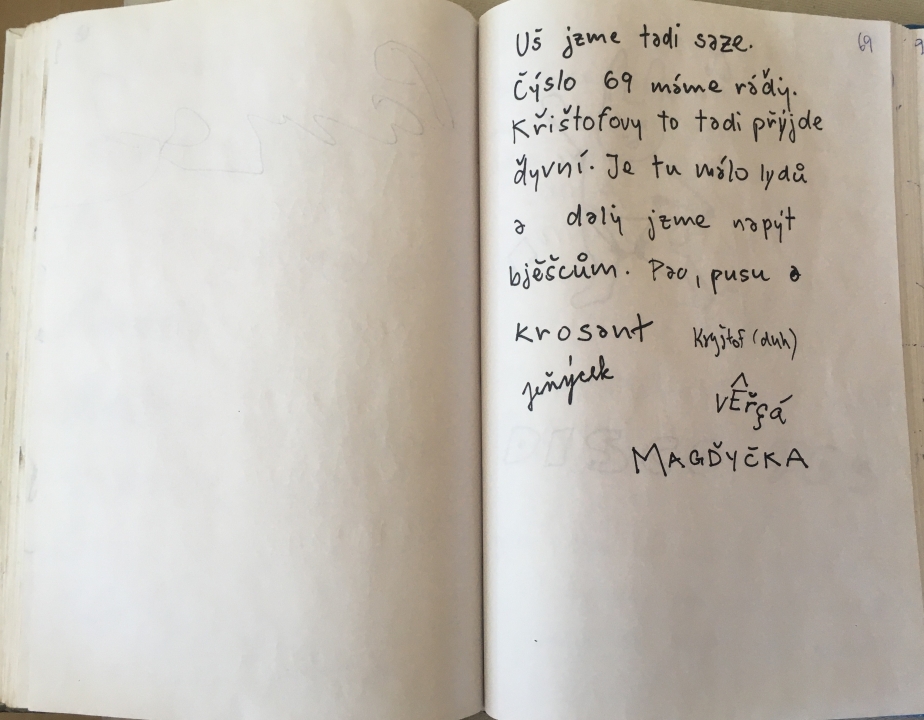 Uš jzme tadi saze.
69
Čýslo 69 máme rády.
Křištofovy to tadi přýjde
ďyvní. Je tu málo lydů
a dalý jzme napýt
bjěšcům. Pao, pusu a
krosant
Kryjtof (duh)
jeňýcek
VÊřçá
MAGĎYČKA